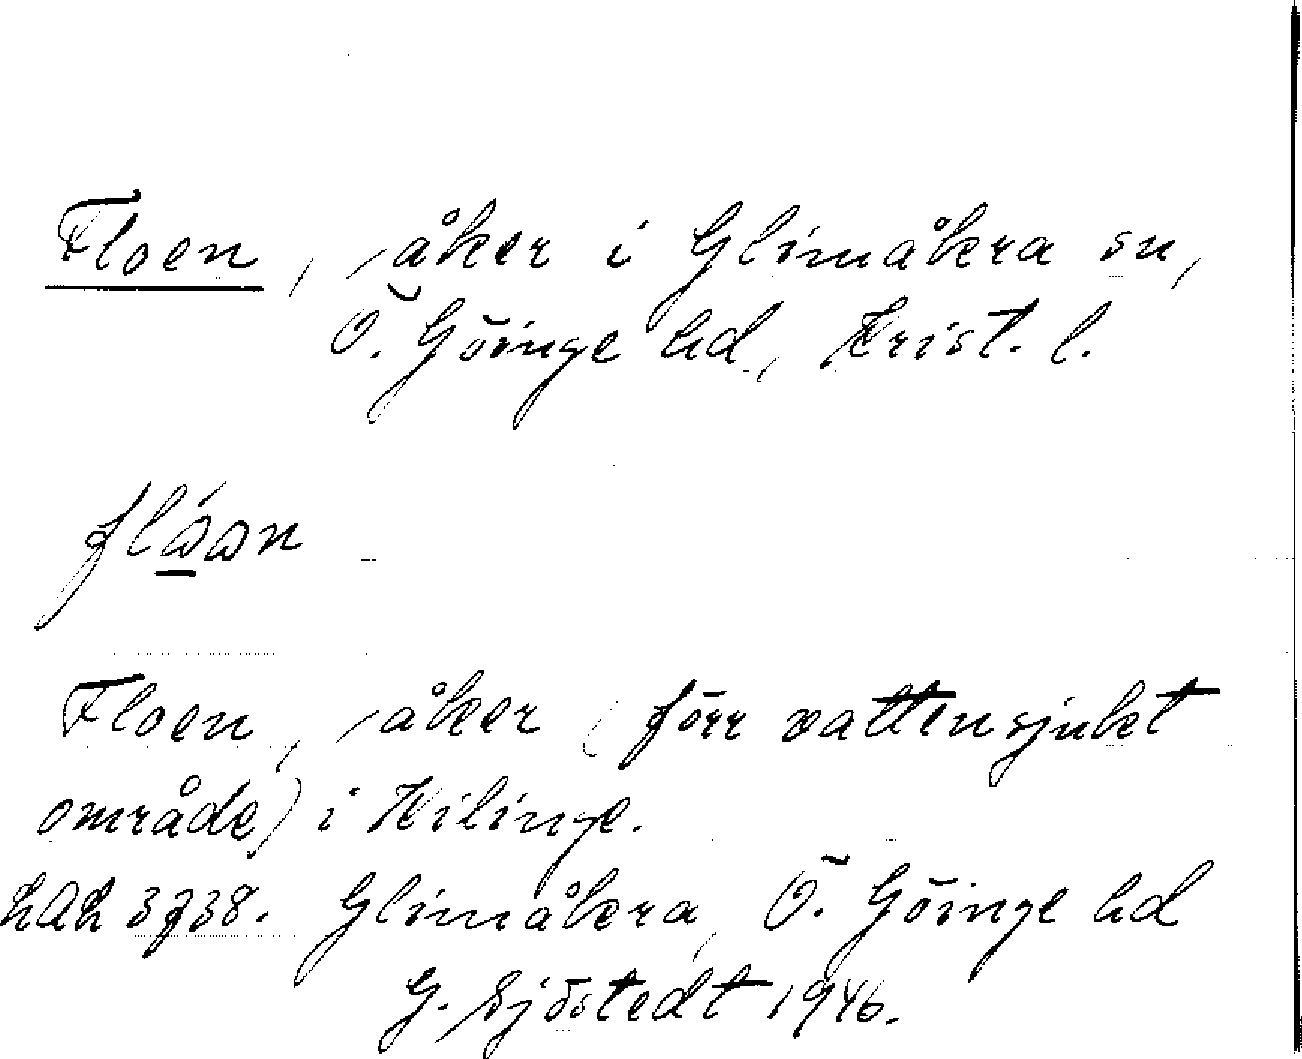 Floen, åker i Glimåkra sn,
Ö. Göinge hd, Krist. l.
Floen, åker (förr vattensjukt
område) i Hilinge.
LAL 3738. Glimåkra, Ö. Göinge hd
G. Sjöstedt 1946.